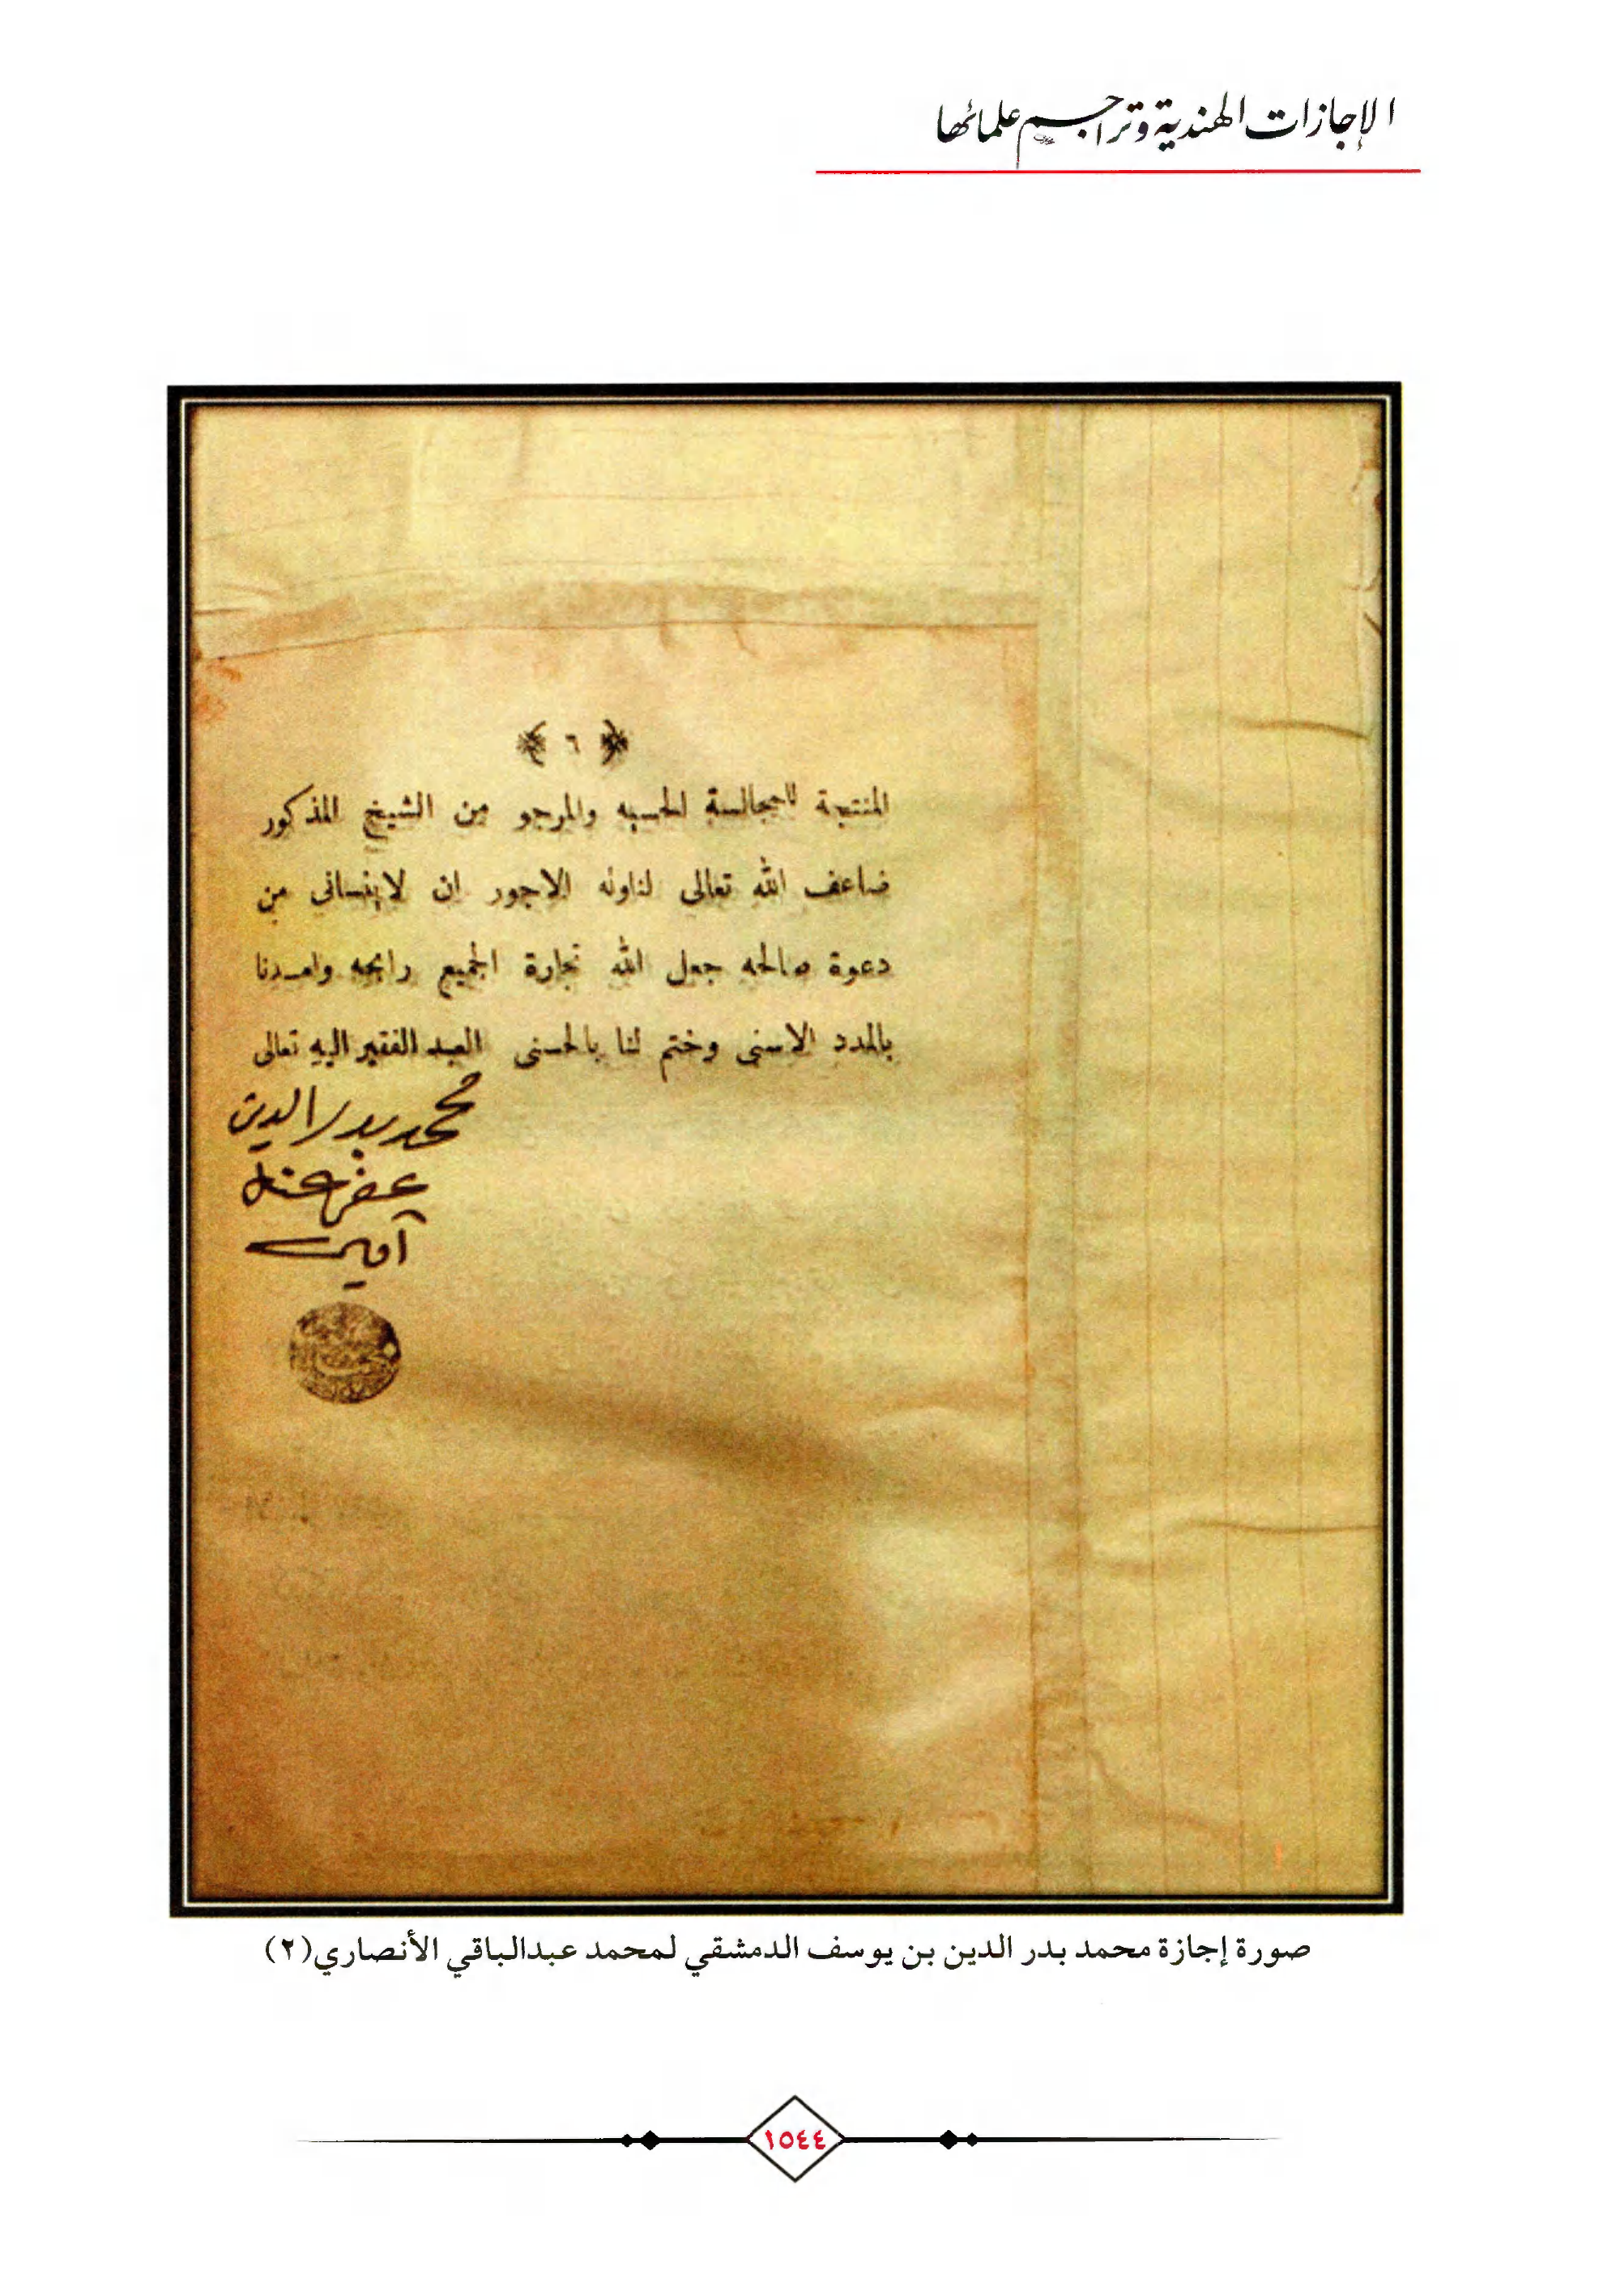 الإجازات الهندية وتراجم علمائها
﴿ ٦ ﴾
المنتجة للمجالسة الحسيه والمرجو من الشيخ المذكور
ضاعف الله تعالى لناوله الاجور ان لا ينسانى من
دعوة صالحه جعل الله تجارة الجميع رابحه وامدنا
بالمدد الاسنى وختم لنا بالحسنى العبد الفقير اليه تعالى
محمد بدر الدين
عفي عنه
آمين
صورة إجازة محمد بدر الدين بن يوسف الدمشقي لمحمد عبدالباقي الأنصاري (٢)
١٥٤٤